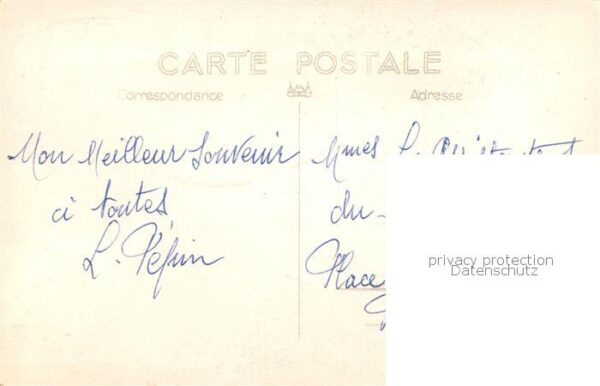 CARTE POSTALE
Correspondance
Adresse
Mon Meilleur Souvenir
à toutes
L. Pépin
Mmes L.
du
Place
privacy protection
Datenschutz